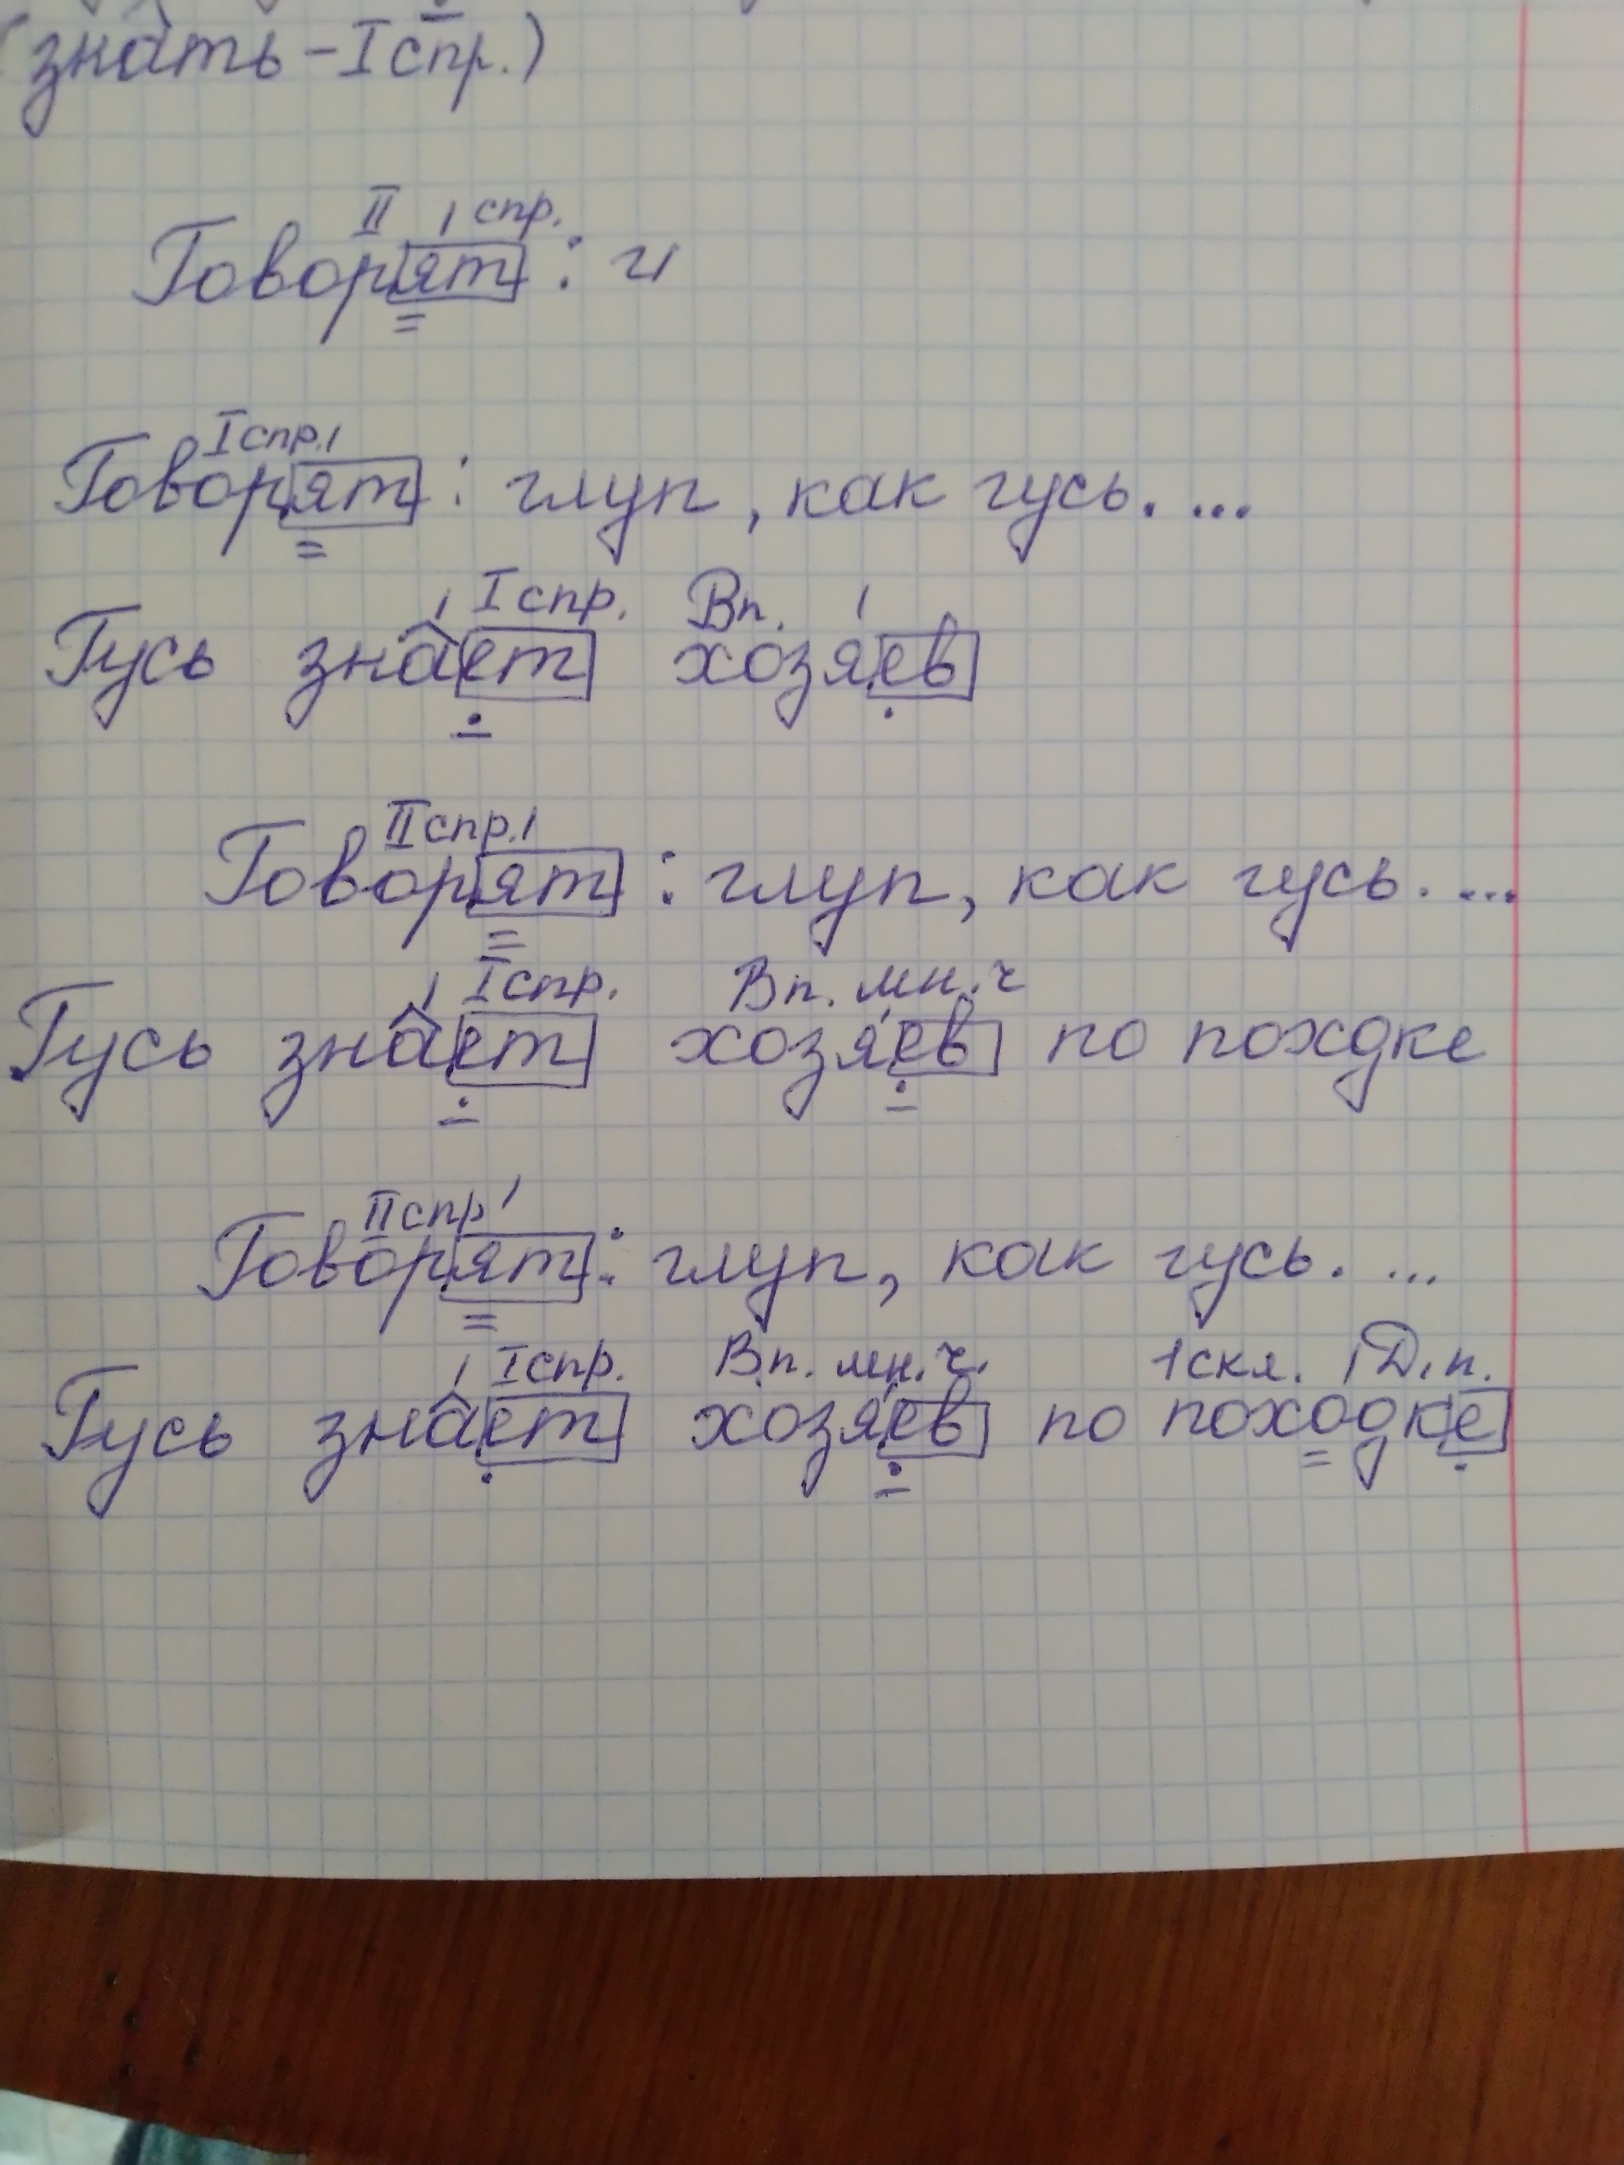 (знать - I спр.)
II спр.
Говорят : и
I спр.
Говорят : глуп, как гусь. ...
I спр. Вп.
Гусь знает хозяев
II спр.
Говорят : глуп, как гусь. ...
I спр. Вп. мн. ч
Гусь знает хозяев по походке
II спр
Говорят : глуп, как гусь. ...
I спр. В.п. мн. ч. 1 скл. Д. п.
Гусь знает хозяев по походке